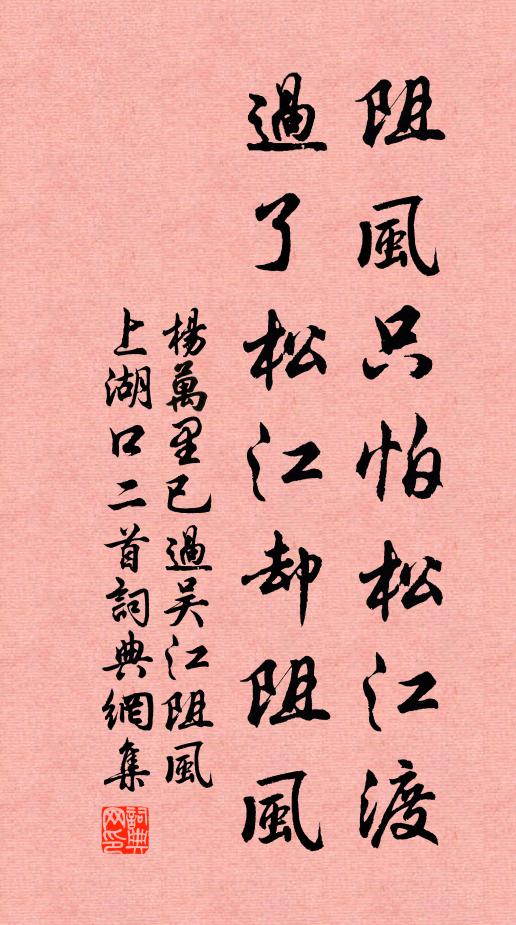 阻風只怕松江渡
過了松江却阻風
楊萬里已過吴江阻風
上湖口二首詞典網集
詞典
网印